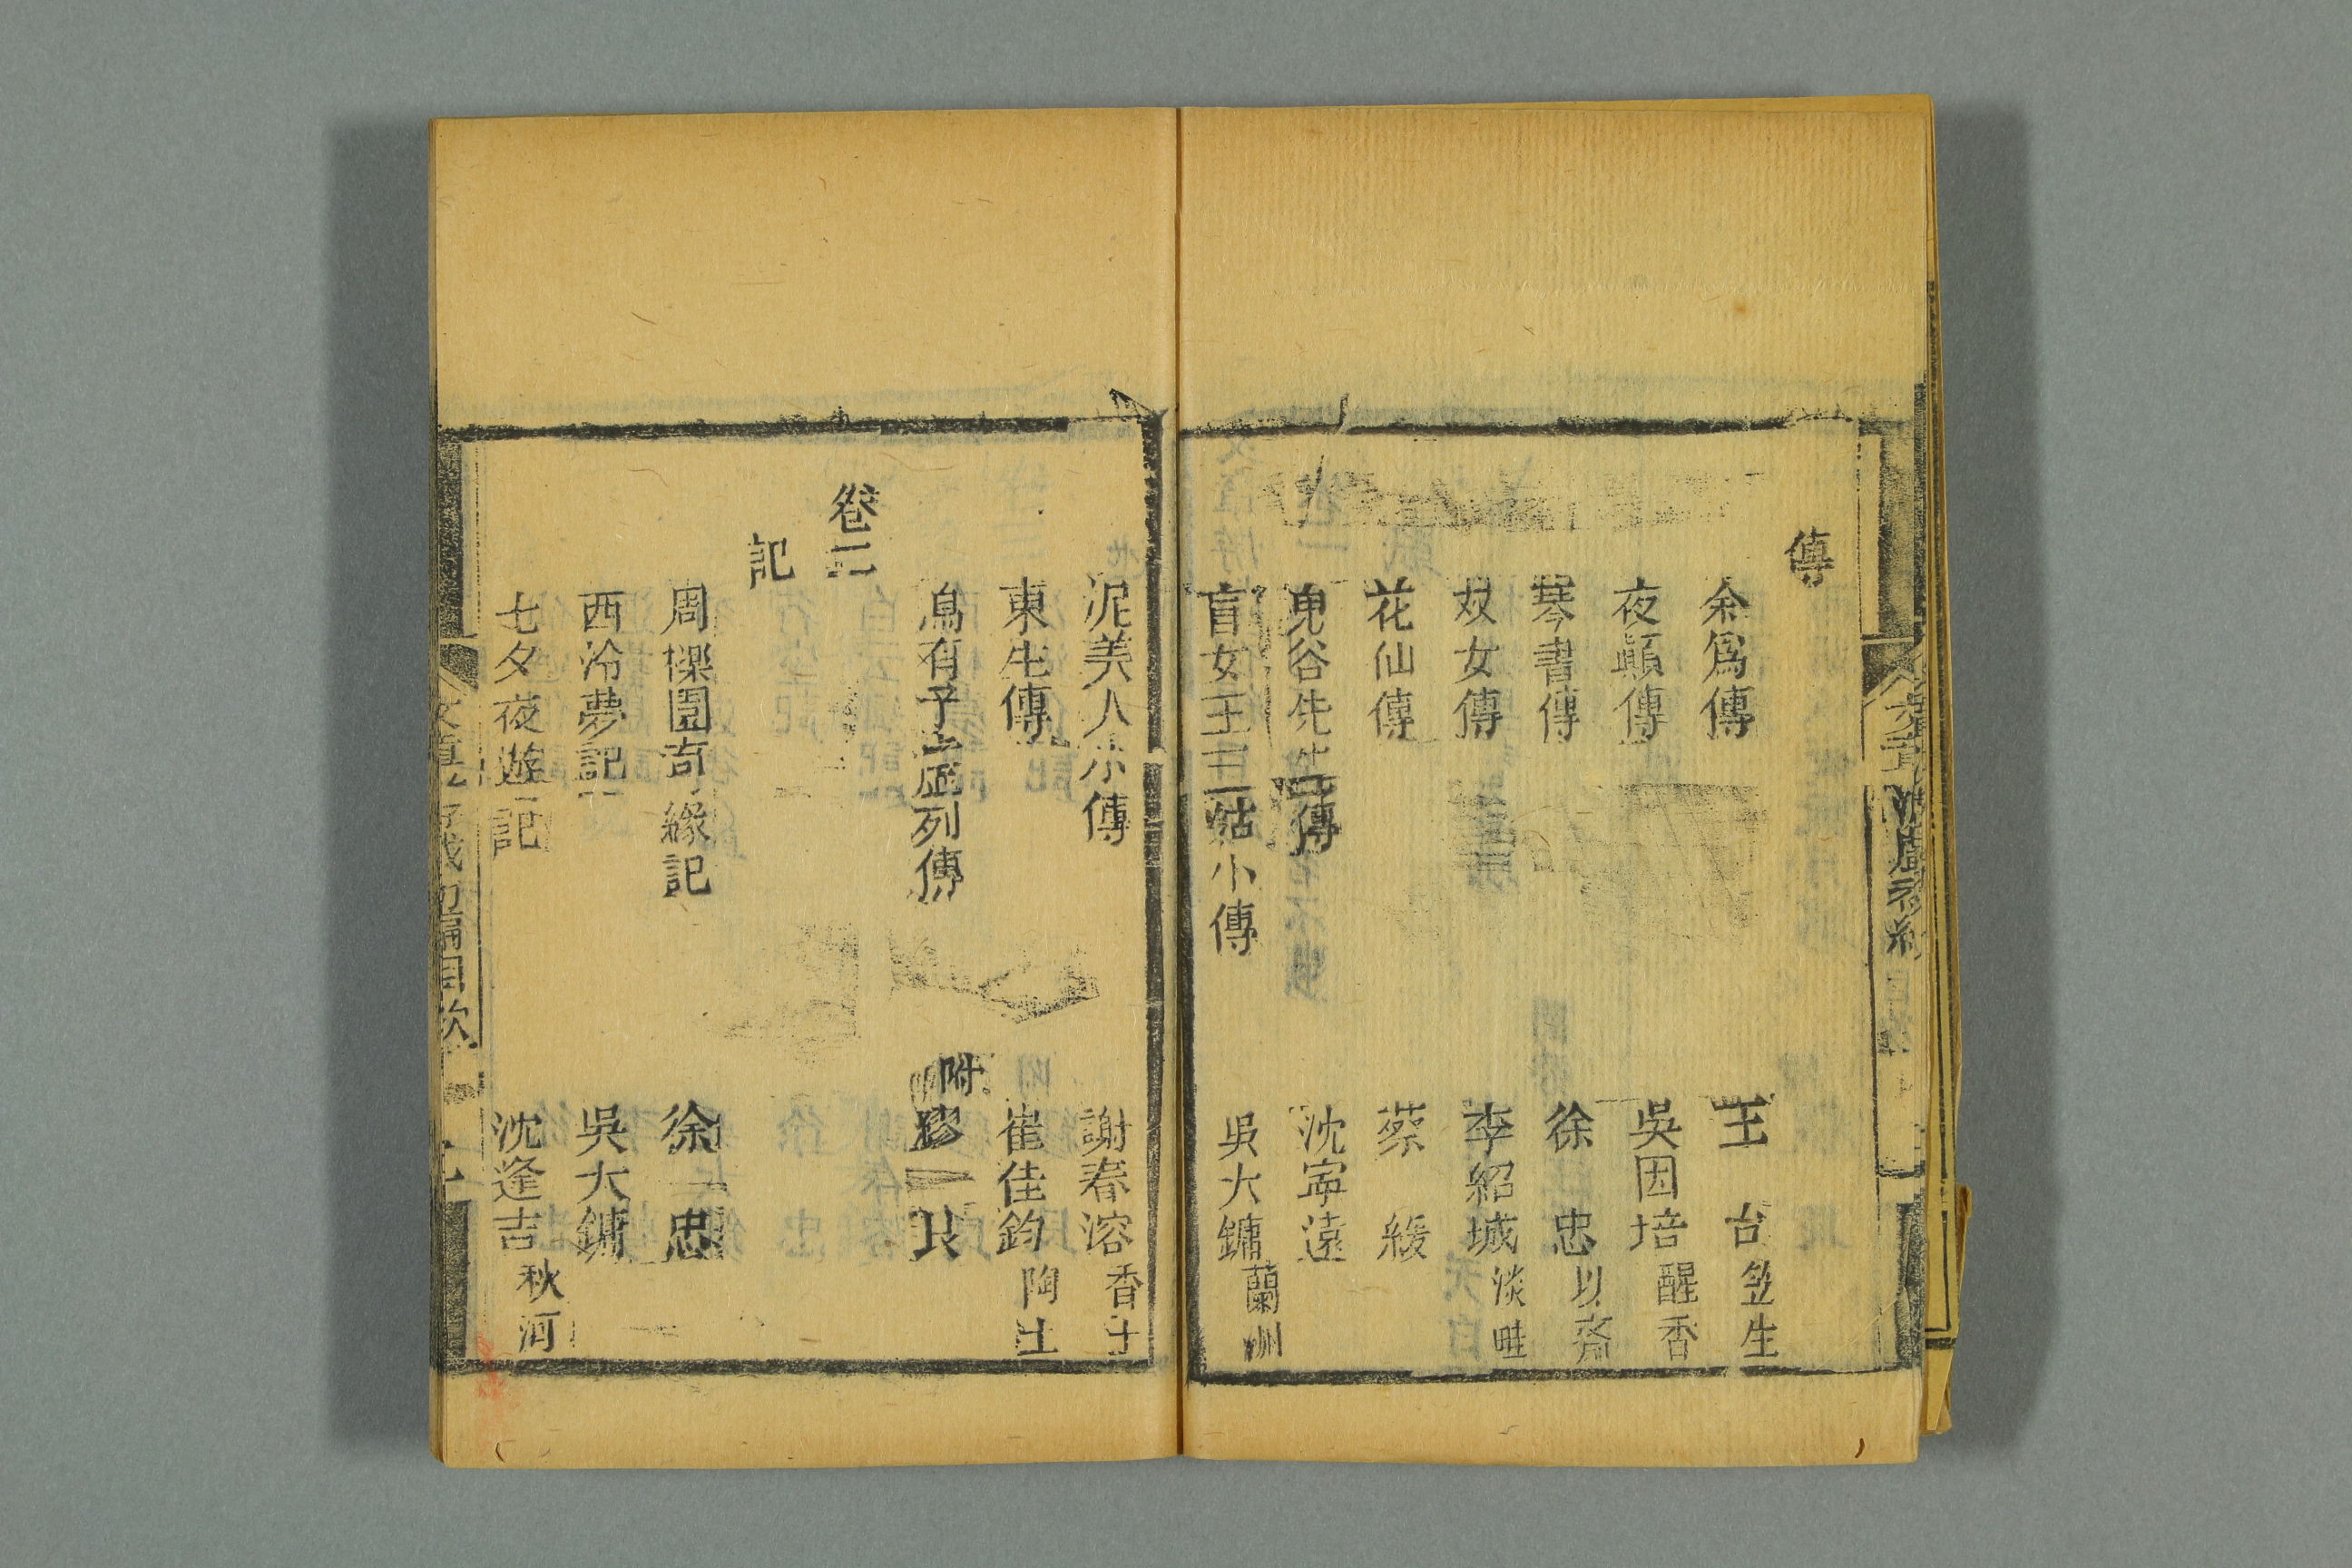 傳
余爲傳 王 台 笠生
夜顛傳 吳因培 醒香
琴書傳 徐 忠 以齋
双女傳 李紹城 淡畦
花仙傳 蔡 緩
鬼谷先生傳 沈寧遠
盲女王三姑小傳 吳大鏞 蘭州
泥美人小傳 謝春溶 香士
東生傳 崔佳鈞 陶土
烏有子虛列傳 附繆 艮
卷二
記
周櫟園奇緣記 徐 忠
西泠夢記 吳大鏞
七夕夜遊記 沈逢吉 秋河
初編目次